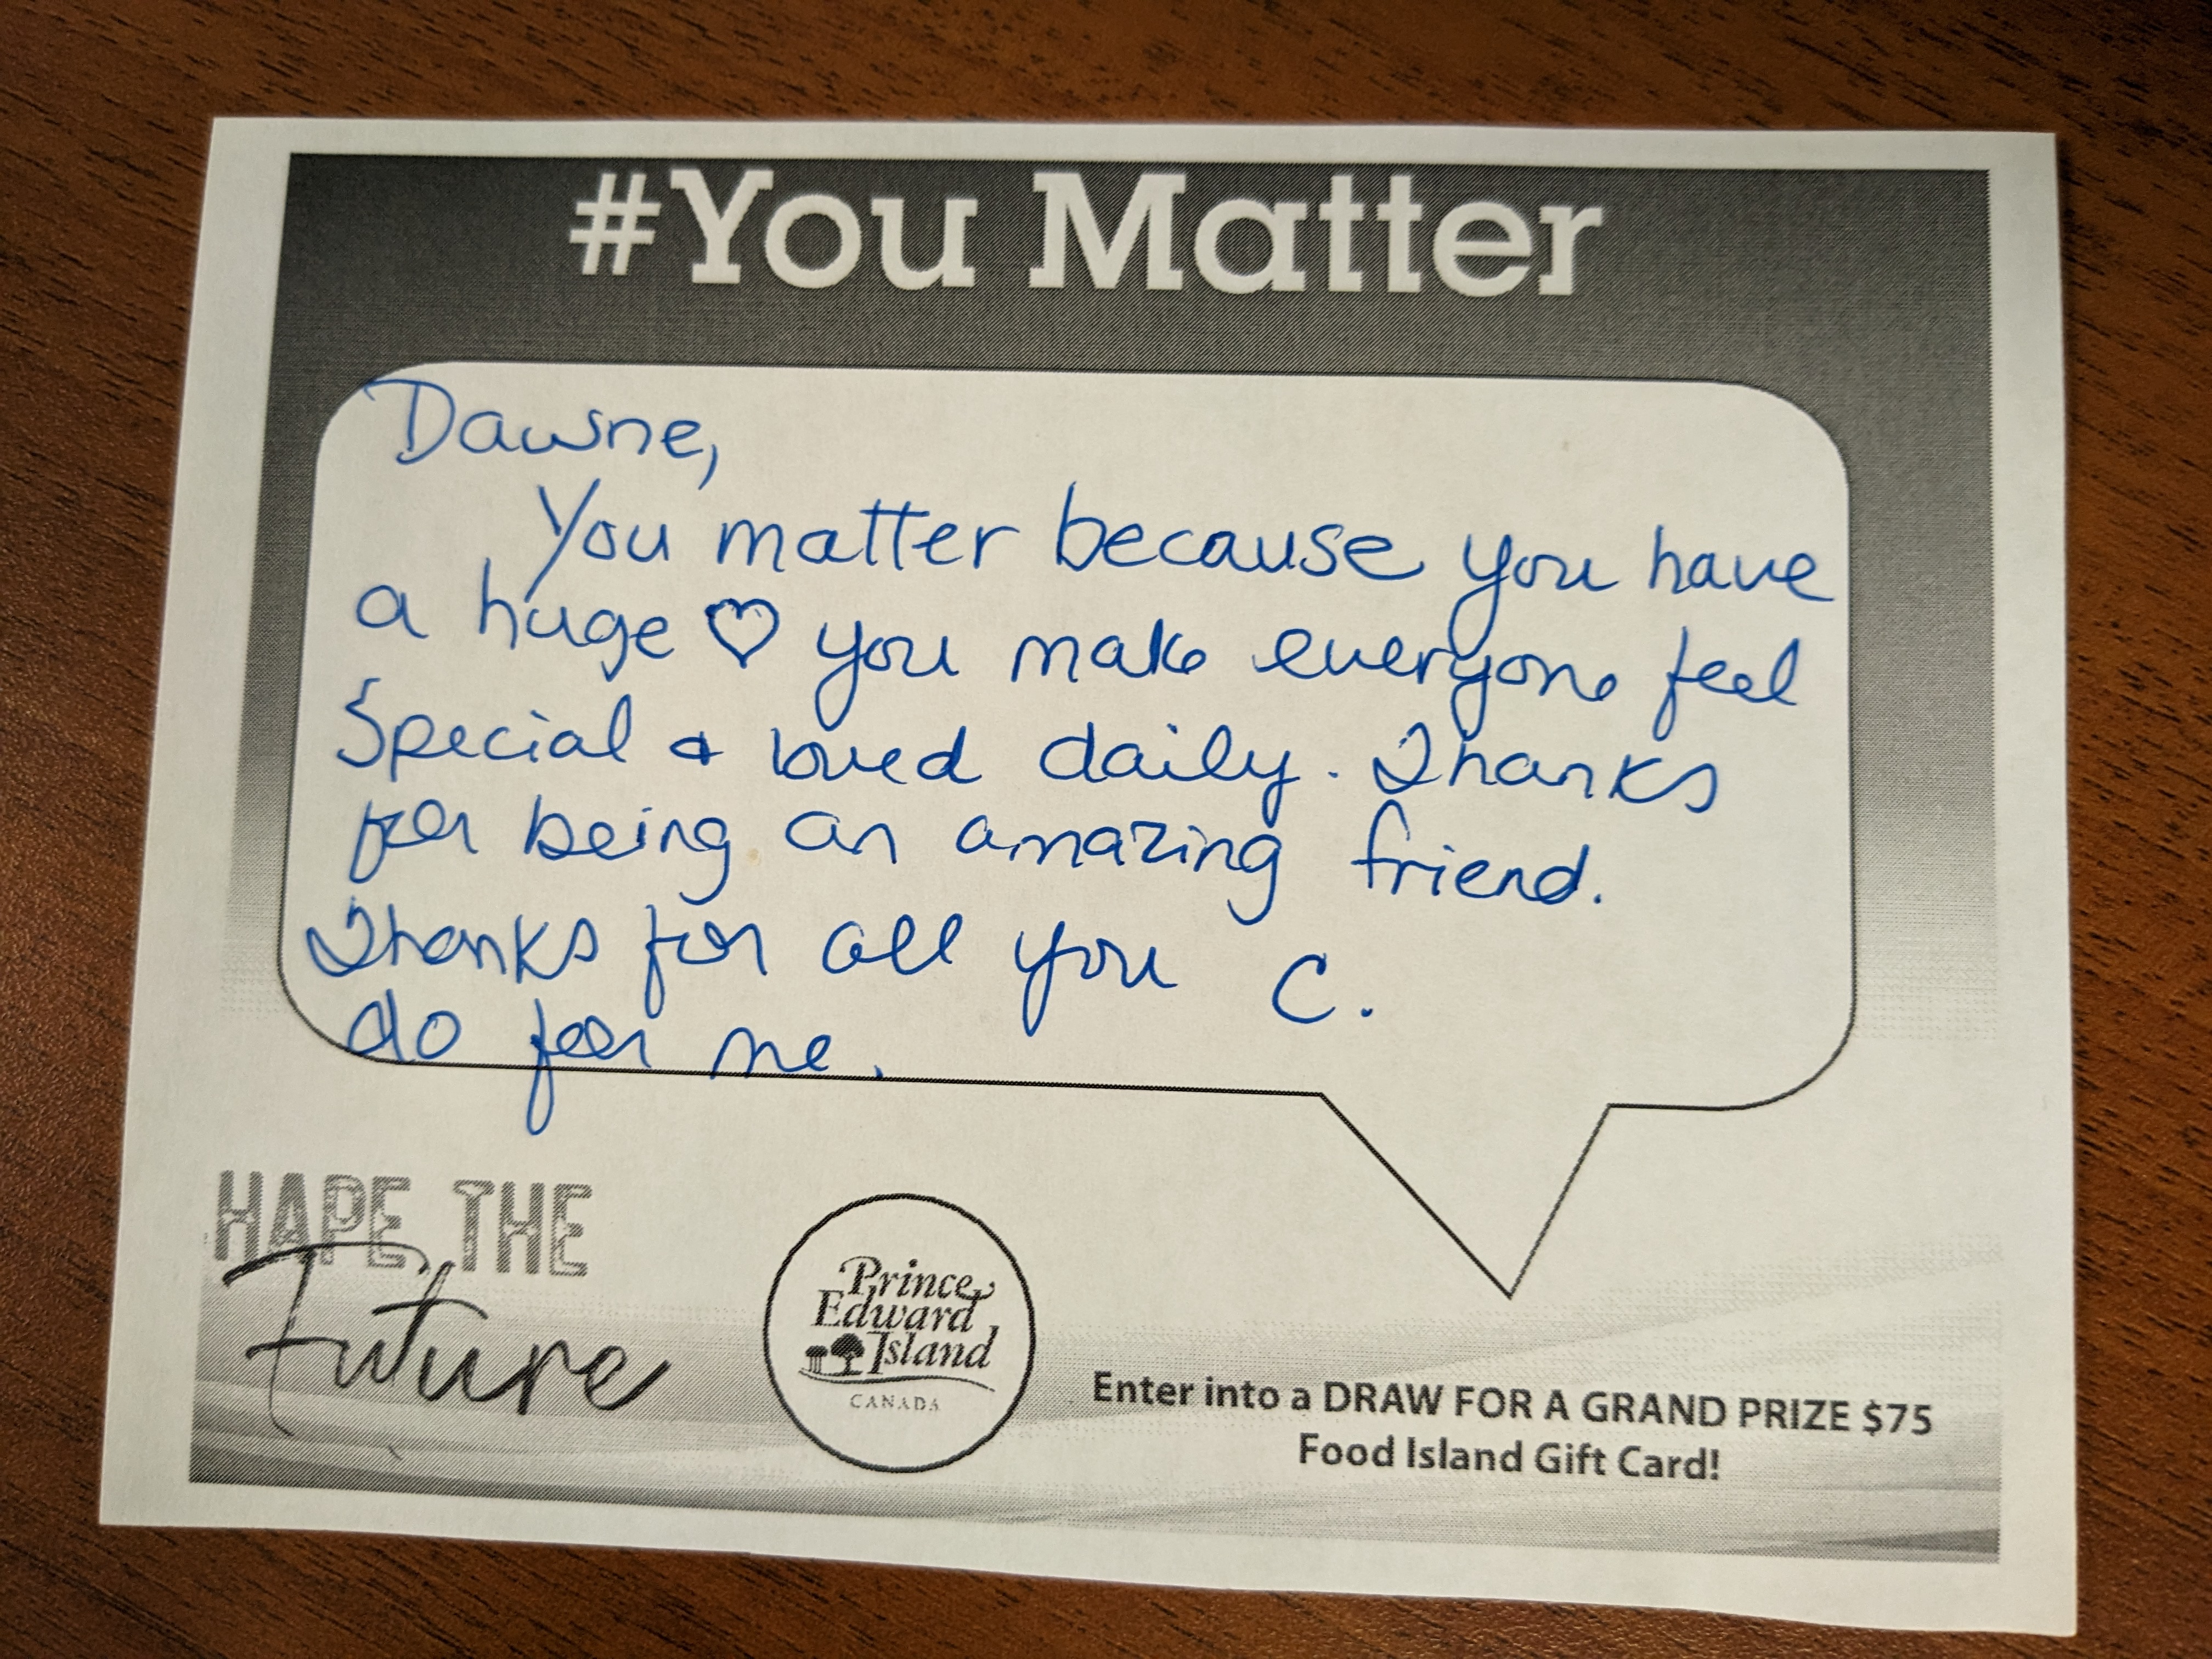 #You Matter
Dawne,
You matter because you have
a huge ♡ you make everyone feel
Special & loved daily. Thanks
for being an amazing friend.
Thanks for all you C.
do for me.
HAPE THE
Future
Prince
Edward
Island
CANADA
Enter into a DRAW FOR A GRAND PRIZE $75
Food Island Gift Card!